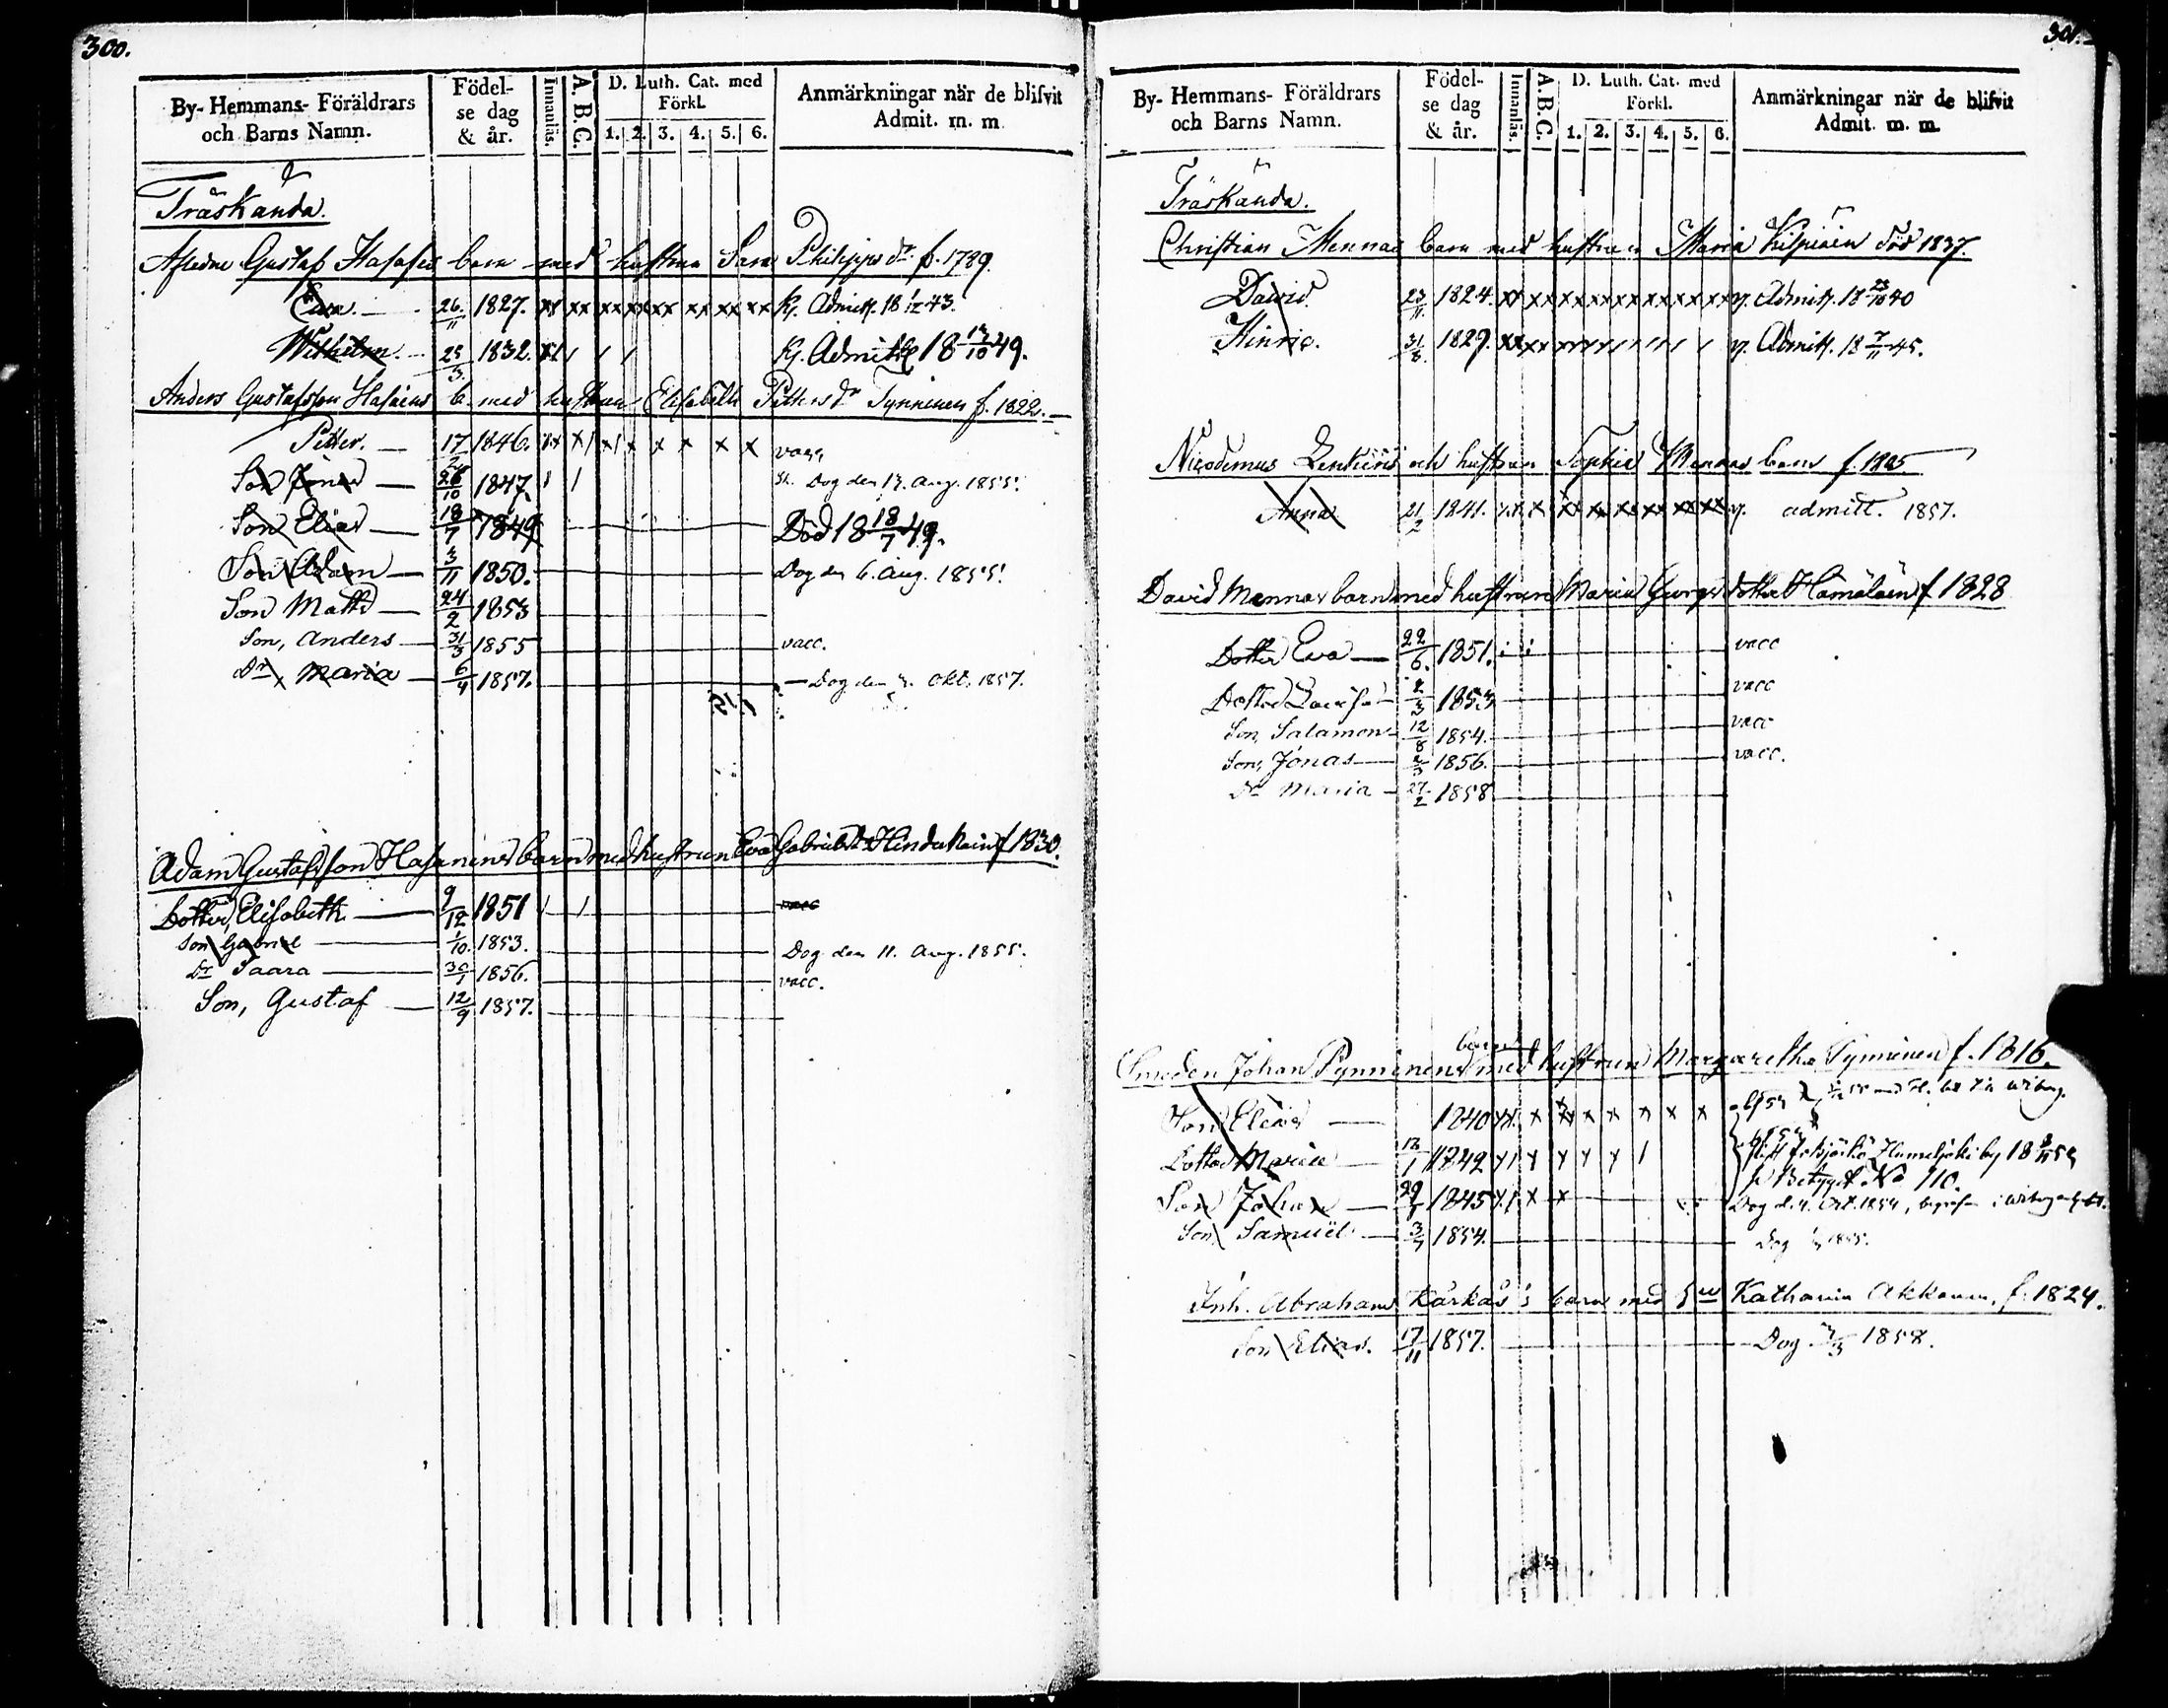 300.
By- Hemmans- Föräldrars och Barns Namn.
Födelse dag & år.
Innanläs.
A.B.C.
D. Luth. Cat. med Förkl.
1. 2. 3. 4. 5. 6.
Anmärkningar när de blifvit Admit. m. m.
Träskända.
Gustaf barn med hustrun Sara Philipps dr f. 1789.
26/11 1827. Admitt. 18 43.
Wilhelm. 1832. Admitt 18 /10 49.
Anders Gustafsson b. med hustrun Elisabeth Petters dr Tynninen f. 1822.
Petter. 17 1846.
Son 1847. Dog den 17. Aug. 1855.
Son Elias 18/7 1849 Död 18 18/7 49.
Son Adam 3/11 1850. Dog den 6. Aug. 1855.
Son Matts 24/2 1853
Son, Anders 31/3 1855 vacc.
Dr Maria 6/4 1857. Dog den Okt. 1857.
Adam Gustafsson Hasanens barn med hustrun Eva Gabriels dr f 1830.
Dotter, Elisabeth 9/12 1851 vacc
Son Gabriel 1/10. 1853. Dog den 11. Aug. 1855.
Dr Saara 30 1856. vacc.
Son, Gustaf 12/9 1857.
301.
By- Hemmans- Föräldrars och Barns Namn.
Födelse dag & år.
Innanläs.
A.B.C.
D. Luth. Cat. med Förkl.
1. 2. 3. 4. 5. 6.
Anmärkningar när de blifvit Admit. m. m.
Träskända.
Christian Mennas barn med hustrun Maria född 1837.
David. 23/11 1824. Admitt. 18 40
Hinric. 31 1829. Admitt. 18 7/11 45.
Nicodemus och hustrun Sophia Mennas barn f. 1805
Anna 21/2 1841. admitt. 1857.
David Mennas barn med hustrun Maria Georgs dotter Hämäläin f 1828
Dotter Eva 22/6. 1851. vacc
Dotter Lovisa 2/3 1853 vacc
Son, Salamon 12/8 1854. vacc
Son, Jonas 1856. vacc.
Dr Maria 27/2 1858
Smeden Johan Pynninens barn med hustrun Margaretha Tynninen f. 1816.
Son Elias 1840
Dotter Maria 1842
by 18
Betyget No 110.
Son Johan 29 1845 Dog d. 4. Oct. 1854,
Son Samuel 3 1854. Dog 1855.
Inh. Abraham Kärkäs's barn med hu Katharina Akkanen. f. 1824.
Son Elias. 17/11 1857. Dog 1858.